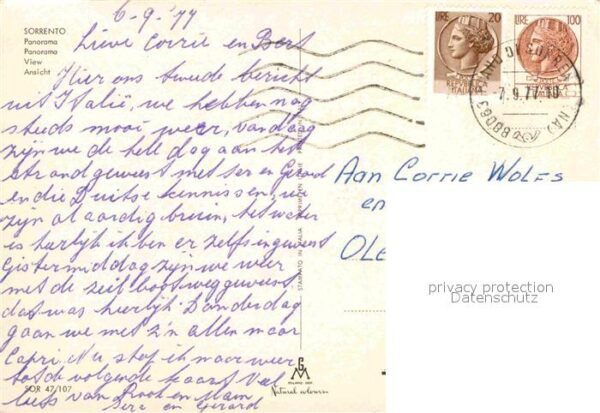 6-9-'77
SORRENTO
Panorama
Panorama
View
Ansicht
Lieve Corrie en Bert
Hier ons tweede bericht
uit Italië, we hebben nog
steeds mooi weer, vandaag
zijn we de hele dag aan het
strand geweest met Ser en Gerard
en die Duitse kennissen, we
zijn al aardig bruin, het water
is heerlijk ik ben er zelfs in geweest
Gistermiddag zijn we weer
met de zeilboot weggeweest
dat was heerlijk. Donderdag
gaan we met z'n allen naar
Capri. Nu stop ik maar weer
tot de volgende kaart. Veel
liefs van Groot en Mam
Ser en Gerard
SOR 47/107
STAMPATO IN ITALIA
Natural colours
LIRE 20
ITALIANA
LIRE 100
7.9.77-10
80063
Aan Corrie Wolfs
en
OLE
privacy protection
Datenschutz